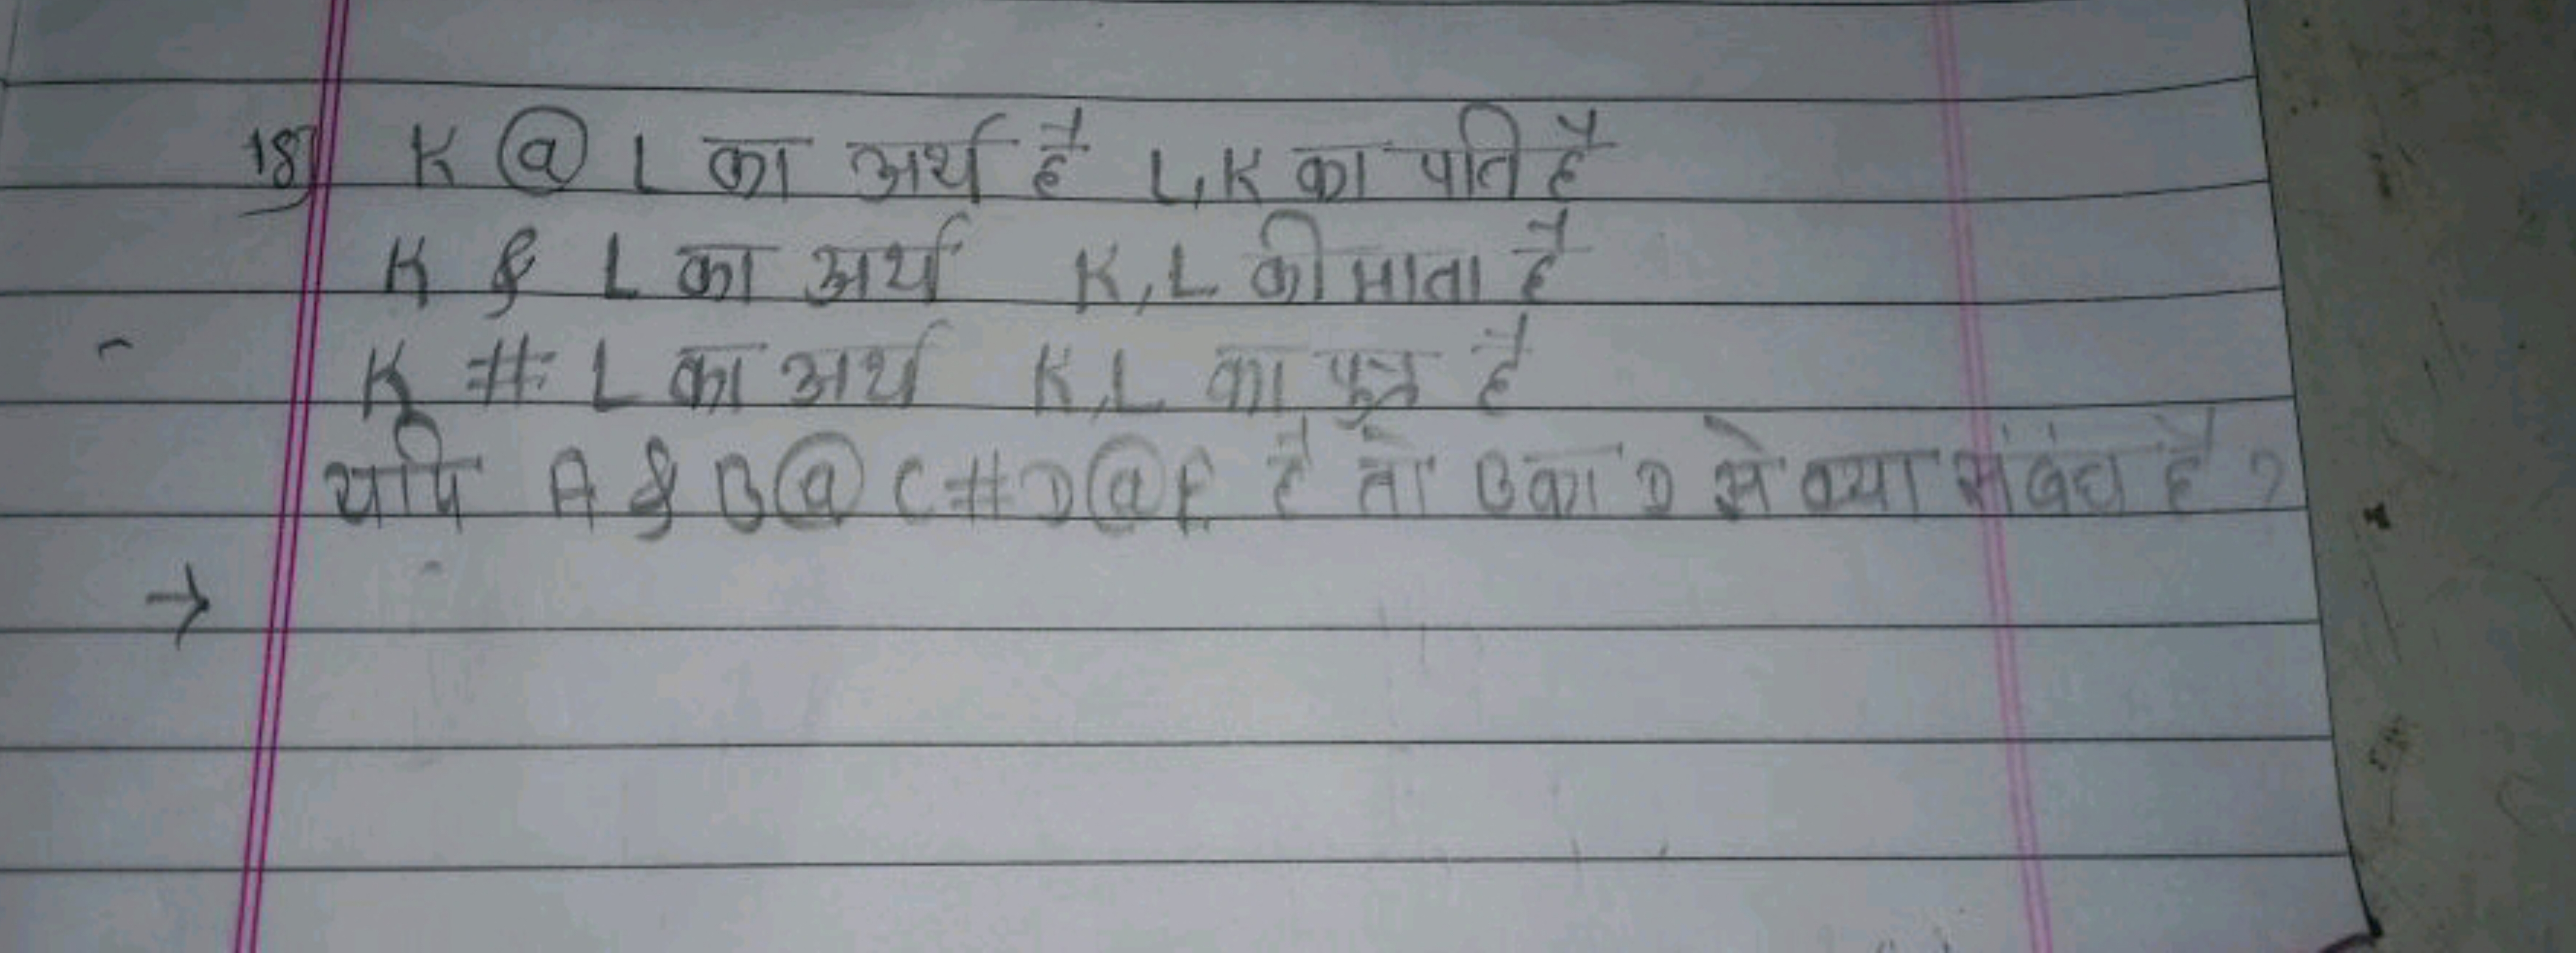 18) K @ L का अर्थ है L, K का पति है
K & L का अर्थ K, L की माता है
K # L का अर्थ K, L का पुत्र है
यपि A & B @ C # D @ E है तो B का D से क्या संबंध है ?
→